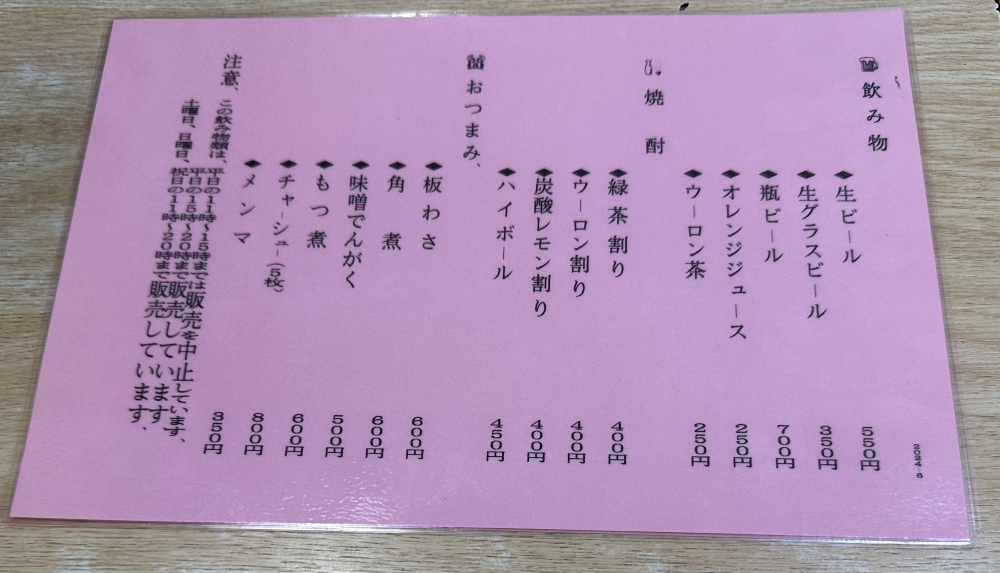 飲み物
生ビール 550円
生グラスビール 350円
瓶ビール 700円
オレンジジュース 250円
ウーロン茶 250円
焼酎
緑茶割り 400円
ウーロン割り 400円
炭酸レモン割り 400円
ハイボール 450円
おつまみ、
板わさ 600円
角煮 600円
もつ煮 500円
味噌でんがく 600円
チャーシュー(5枚) 800円
メンマ 350円
注意、この飲み物類は、平日の11時~15時までは販売を中止しています、
平日の15時~20時まで販売しています
土曜日、日曜日、祝日の11時~20時まで販売しています、
2024-6